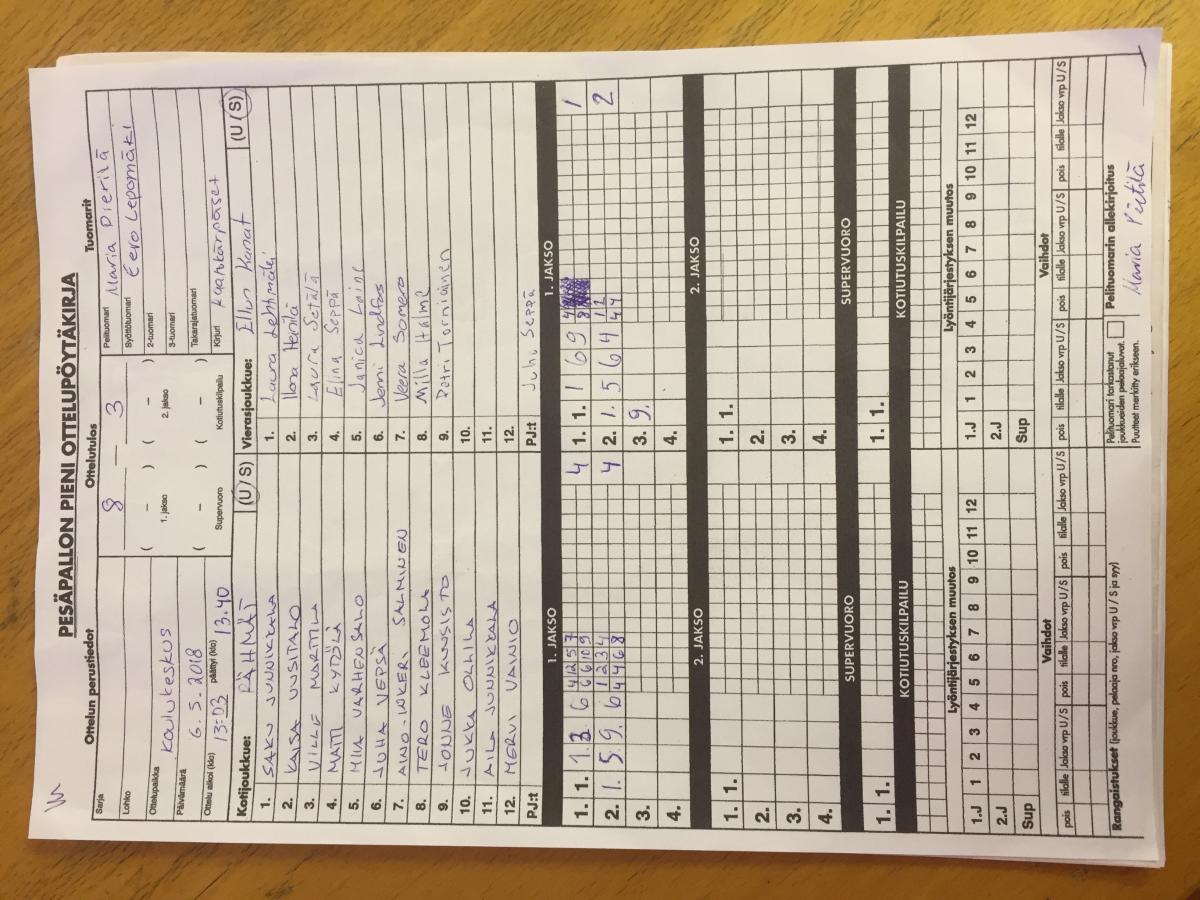 PESÄPALLON PIENI OTTELUPÖYTÄKIRJA
Ottelun perustiedot
Ottelutulos
Tuomarit
Sarja
Lohko
Ottelupaikka KOULUKESKUS
Päivämäärä 6.5.2018
Ottelu alkoi (klo) 13:03 päättyi (klo) 13.40
8 – 3
( – ) ( – )
1. jakso 2. jakso
( – ) ( – )
Supervuoro Kotiutuskilpailu
Pelituomari Maria Pierilä
Syöttötuomari Eero Lepomäki
2-tuomari
3-tuomari
Takarajatuomari
Kirjuri Kaarikärpäset
Kotijoukkue: PÄHNÄT (U / S)
1. SAKU JUNNIKKALA
2. KAISA UUSITALO
3. VILLE MARTTILA
4. MATTI KYTÖLÄ
5. MIIA VARHENSALO
6. JUHA VEPSÄ
7. AINO-INKERI SALMINEN
8. TERO KLEEMOLA
9. JONNE KUUSISTO
10. JUKKA OLLILA
11. AILA JUNNIKKALA
12. MERVI VAINIO
PJ:t
Vierasjoukkue: Ellun Kanat (U / S)
1. Laura Lehtimäki
2. Ilona Heinilä
3. Laura Setälä
4. Elina Seppä
5. Janica Laine
6. Jenni Lindfors
7. Veera Somero
8. Milla Halme
9. Petri Torniainen
10.
11.
12.
PJ:t Juho Seppä
1. JAKSO
1. JAKSO
1. 1. 6 4 12 5 7 4
6 6 10 9
2. 1. 5. 9. 6 1 2 3 4 4
4 4 6 8
3.
4.
1. 1. 1 6 9 1
2. 1. 5 6 4 1 2 2
4 4
3. 9.
4.
2. JAKSO
2. JAKSO
1. 1.
2.
3.
4.
1. 1.
2.
3.
4.
SUPERVUORO
SUPERVUORO
1. 1.
1. 1.
KOTIUTUSKILPAILU
KOTIUTUSKILPAILU
Lyöntijärjestyksen muutos
Lyöntijärjestyksen muutos
1.J 1 2 3 4 5 6 7 8 9 10 11 12
2.J
Sup
1.J 1 2 3 4 5 6 7 8 9 10 11 12
2.J
Sup
Vaihdot
Vaihdot
pois tilalle Jakso vrp U / S pois tilalle Jakso vrp U / S pois tilalle Jakso vrp U / S
pois tilalle Jakso vrp U / S pois tilalle Jakso vrp U / S pois tilalle Jakso vrp U / S
Rangaistukset (joukkue, pelaaja nro, jakso vrp U / S ja syy)
Pelituomari tarkastanut
joukkueiden pelaajaluvat.
Puutteet merkitty erikseen.
Pelituomarin allekirjoitus
Maria